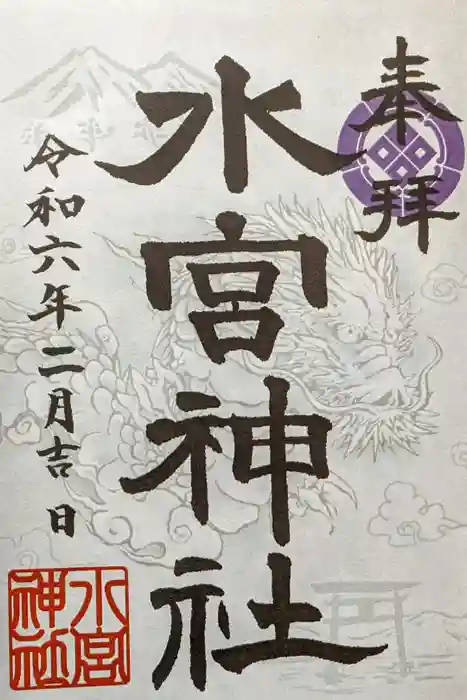 奉拝
水宮神社
令和六年二月吉日
水宮
神社